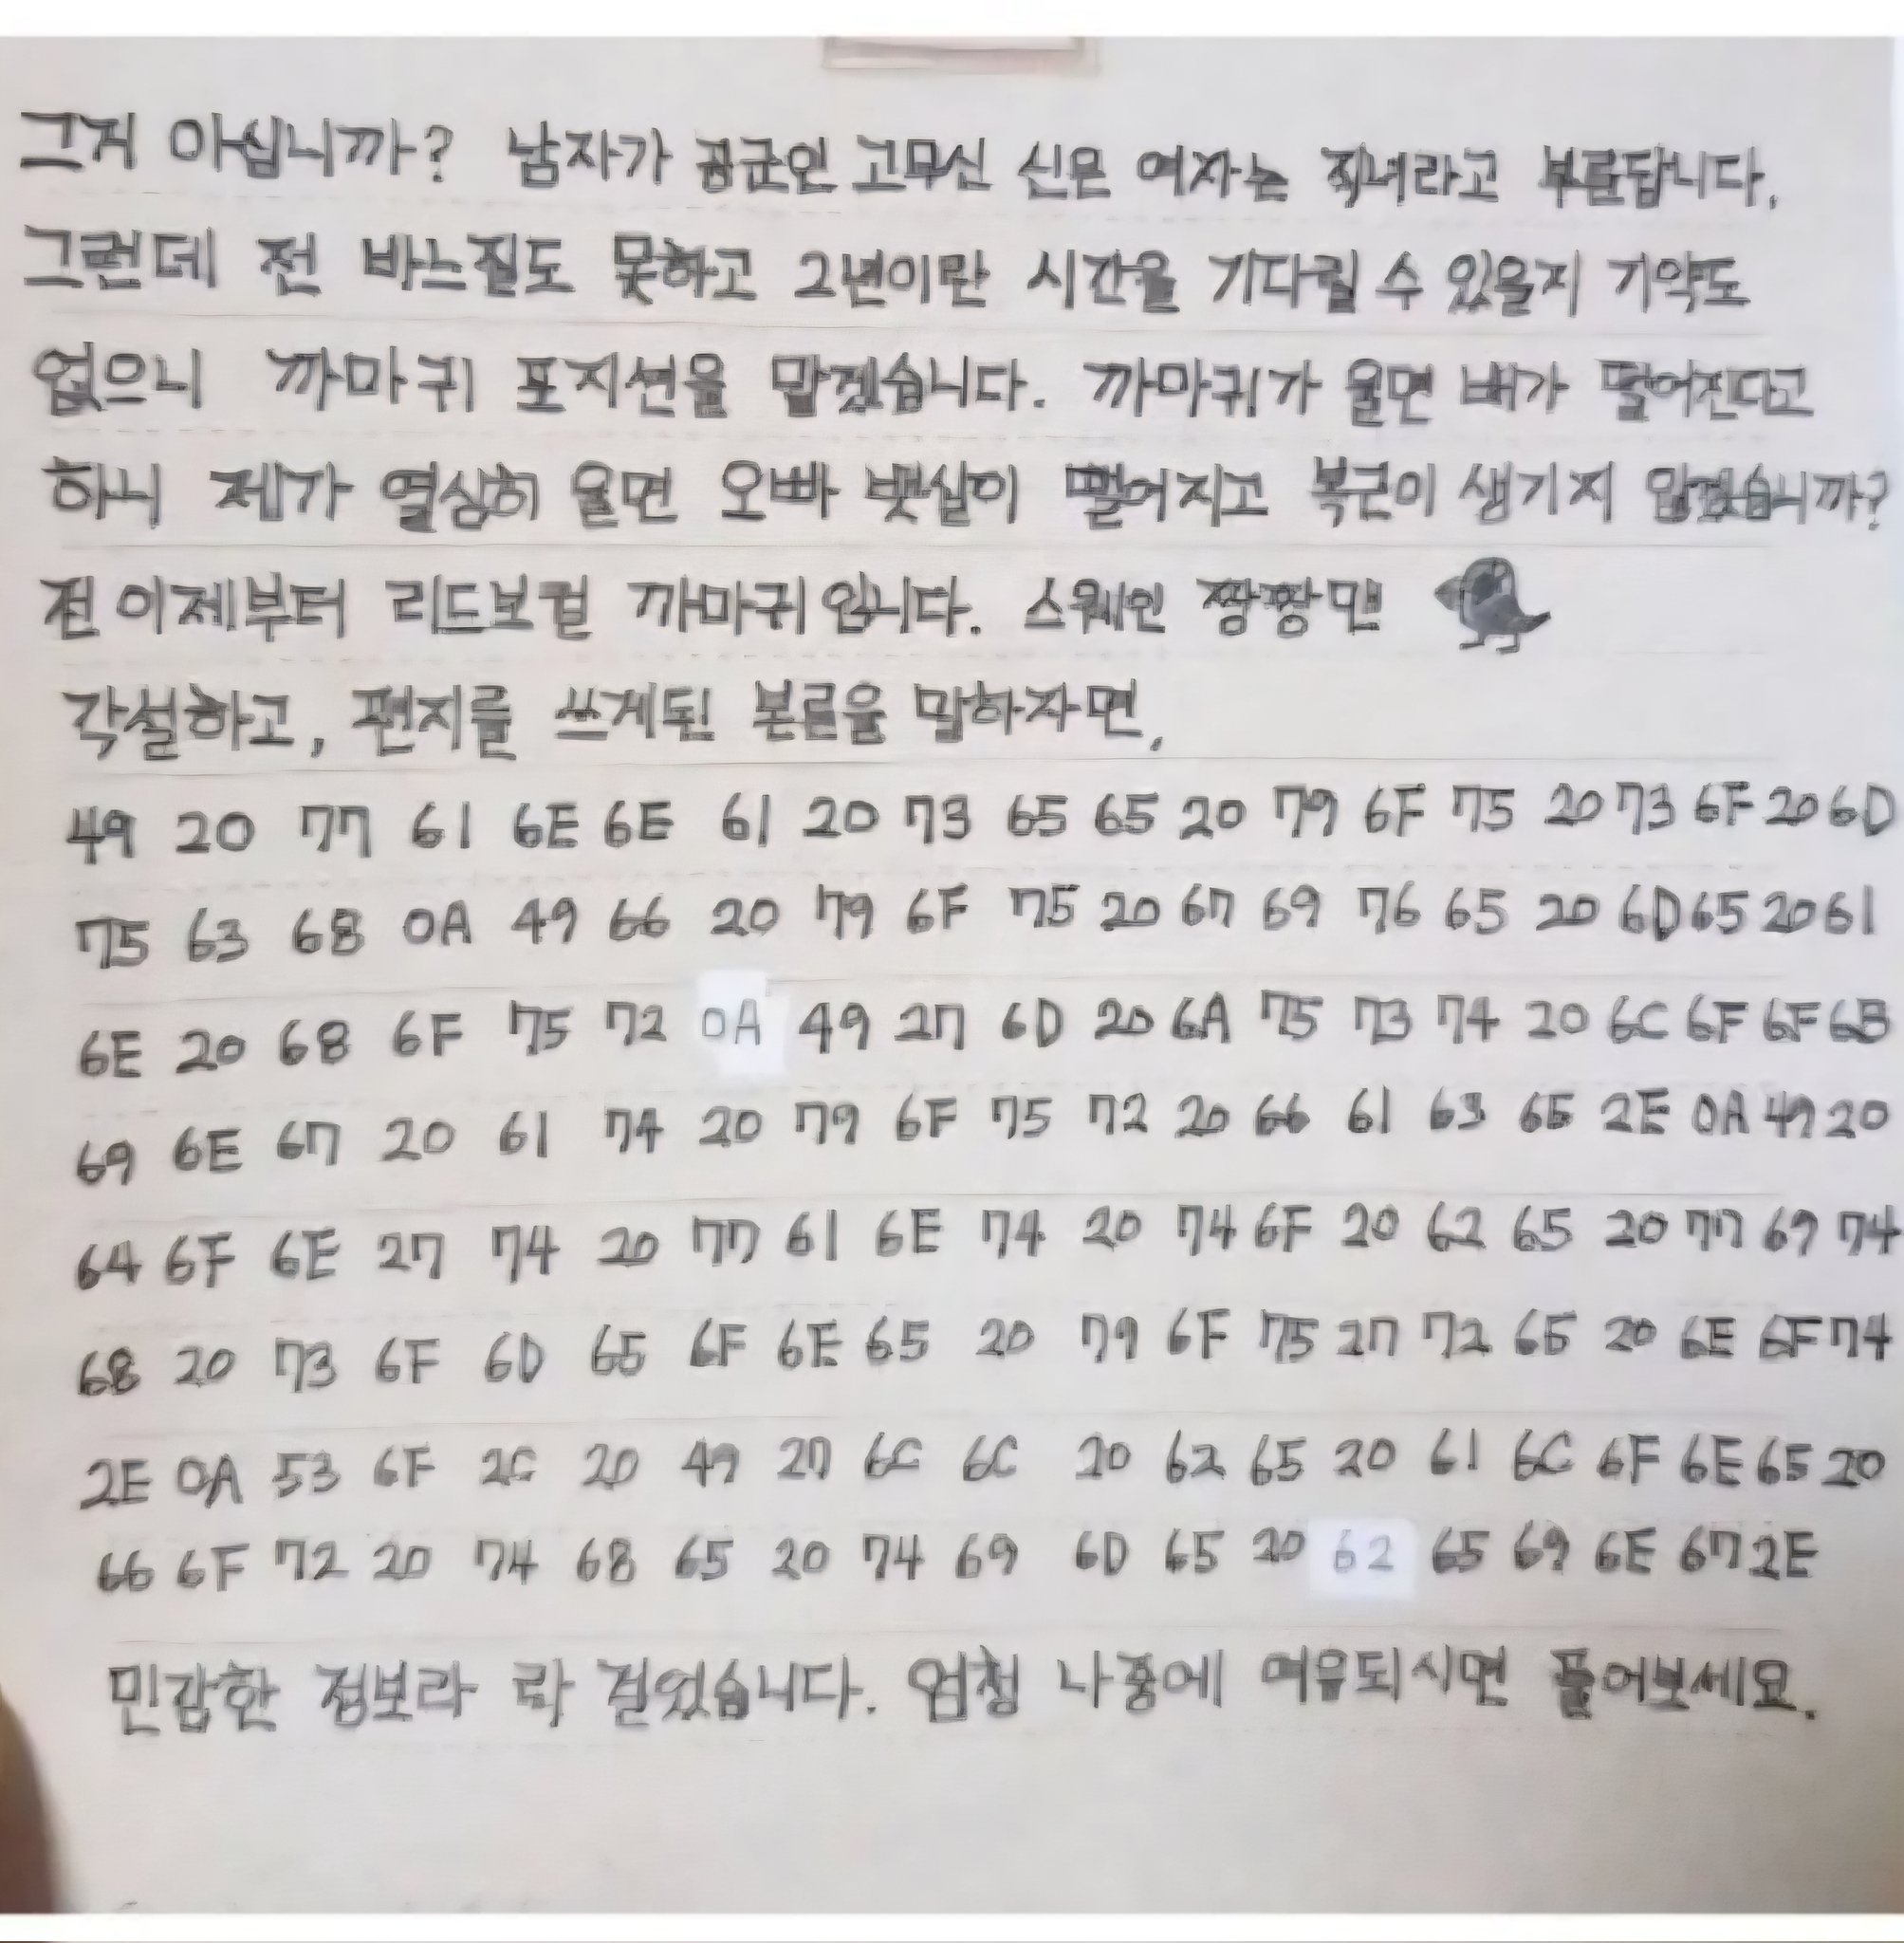 그거 아십니까? 남자가 공군인 고무신 신은 여자는 직녀라고 부른답니다.
그런데 전 바느질도 못하고 2년이란 시간을 기다릴 수 있을지 기약도
없으니 까마귀 포지션을 맡겠습니다. 까마귀가 울면 배가 떨어진다고
하니 제가 열심히 울면 오빠 뱃살이 떨어지고 복근이 생기지 않겠습니까?
전 이제부터 리드보컬 까마귀입니다. 스웨인 짱짱맨
각설하고, 편지를 쓰게된 본론을 말하자면,
49 20 77 61 6E 6E 61 20 73 65 65 20 79 6F 75 20 73 6F 20 6D
75 63 68 0A 49 66 20 79 6F 75 20 67 69 76 65 20 6D 65 20 61
6E 20 68 6F 75 72 0A 49 27 6D 20 6A 75 73 74 20 6C 6F 6F 6B
69 6E 67 20 61 74 20 79 6F 75 72 20 66 61 63 65 2E 0A 49 20
64 6F 6E 27 74 20 77 61 6E 74 20 74 6F 20 62 65 20 77 69 74
68 20 73 6F 6D 65 6F 6E 65 20 79 6F 75 27 72 65 20 6E 6F 74
2E 0A 53 6F 2C 20 49 27 6C 6C 20 62 65 20 61 6C 6F 6E 65 20
66 6F 72 20 74 68 65 20 74 69 6D 65 20 62 65 69 6E 67 2E
민감한 정보라 락 걸었습니다. 엄청 나중에 여유되시면 풀어보세요.